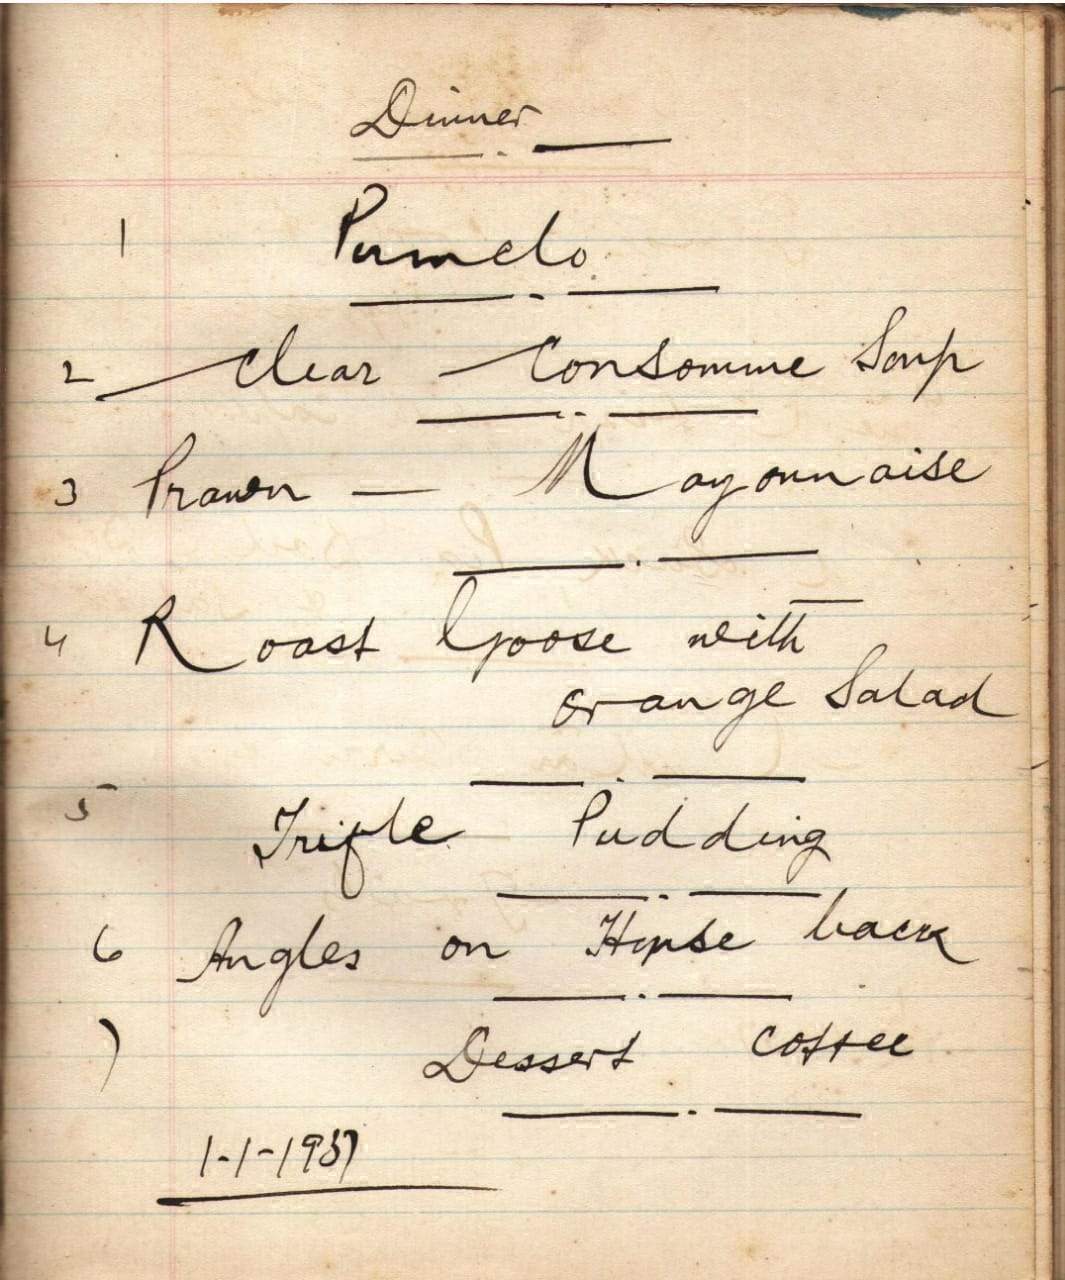 Dinner
1 Pumelo
2 Clear Consomme Soup
3 Prawn — Mayonnaise
4 Roast Goose with
orange Salad
5 Trifle Pudding
6 Angles on Horse back
7 Dessert Coffee
1-1-1937